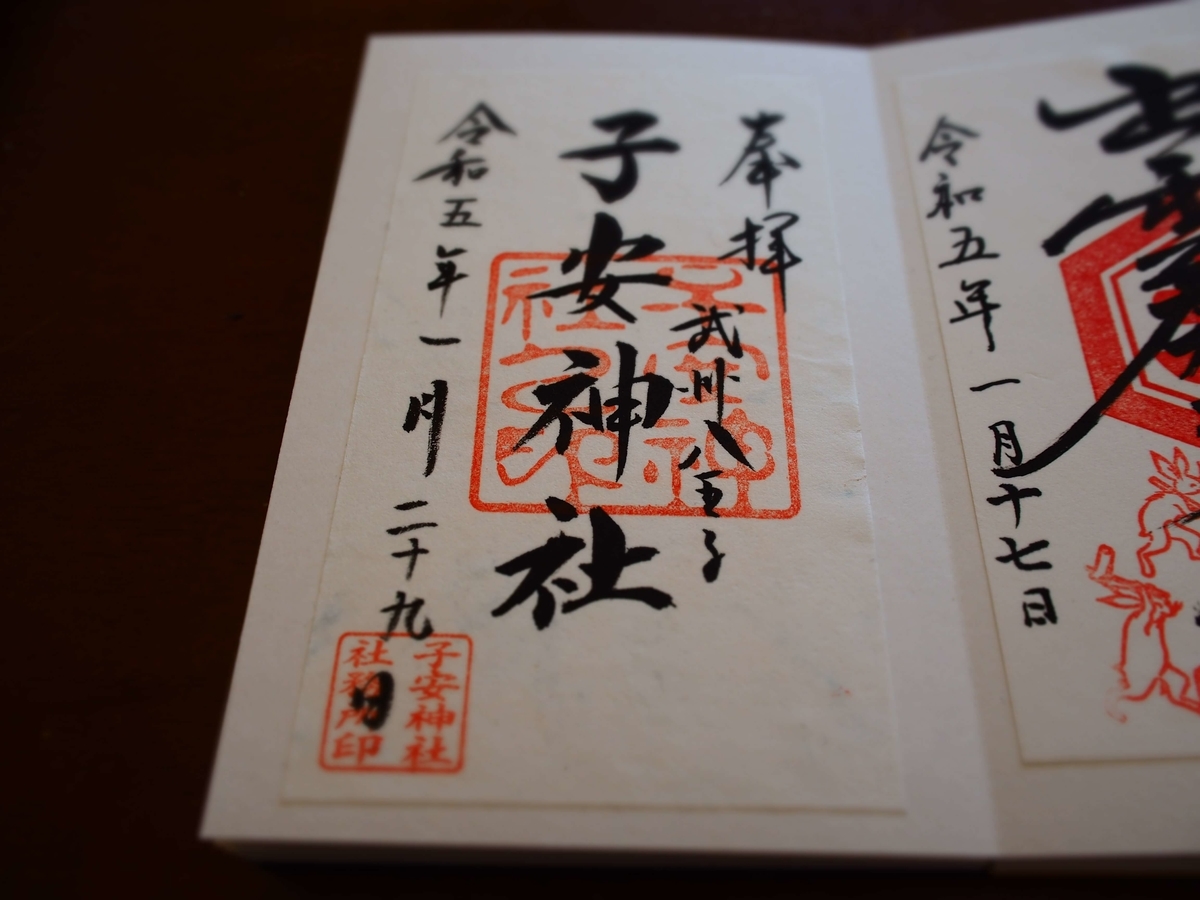 奉拝
武州八王子
子安神社
令和五年一月二十九日
子安神社
社務所印
令和五年一月十七日